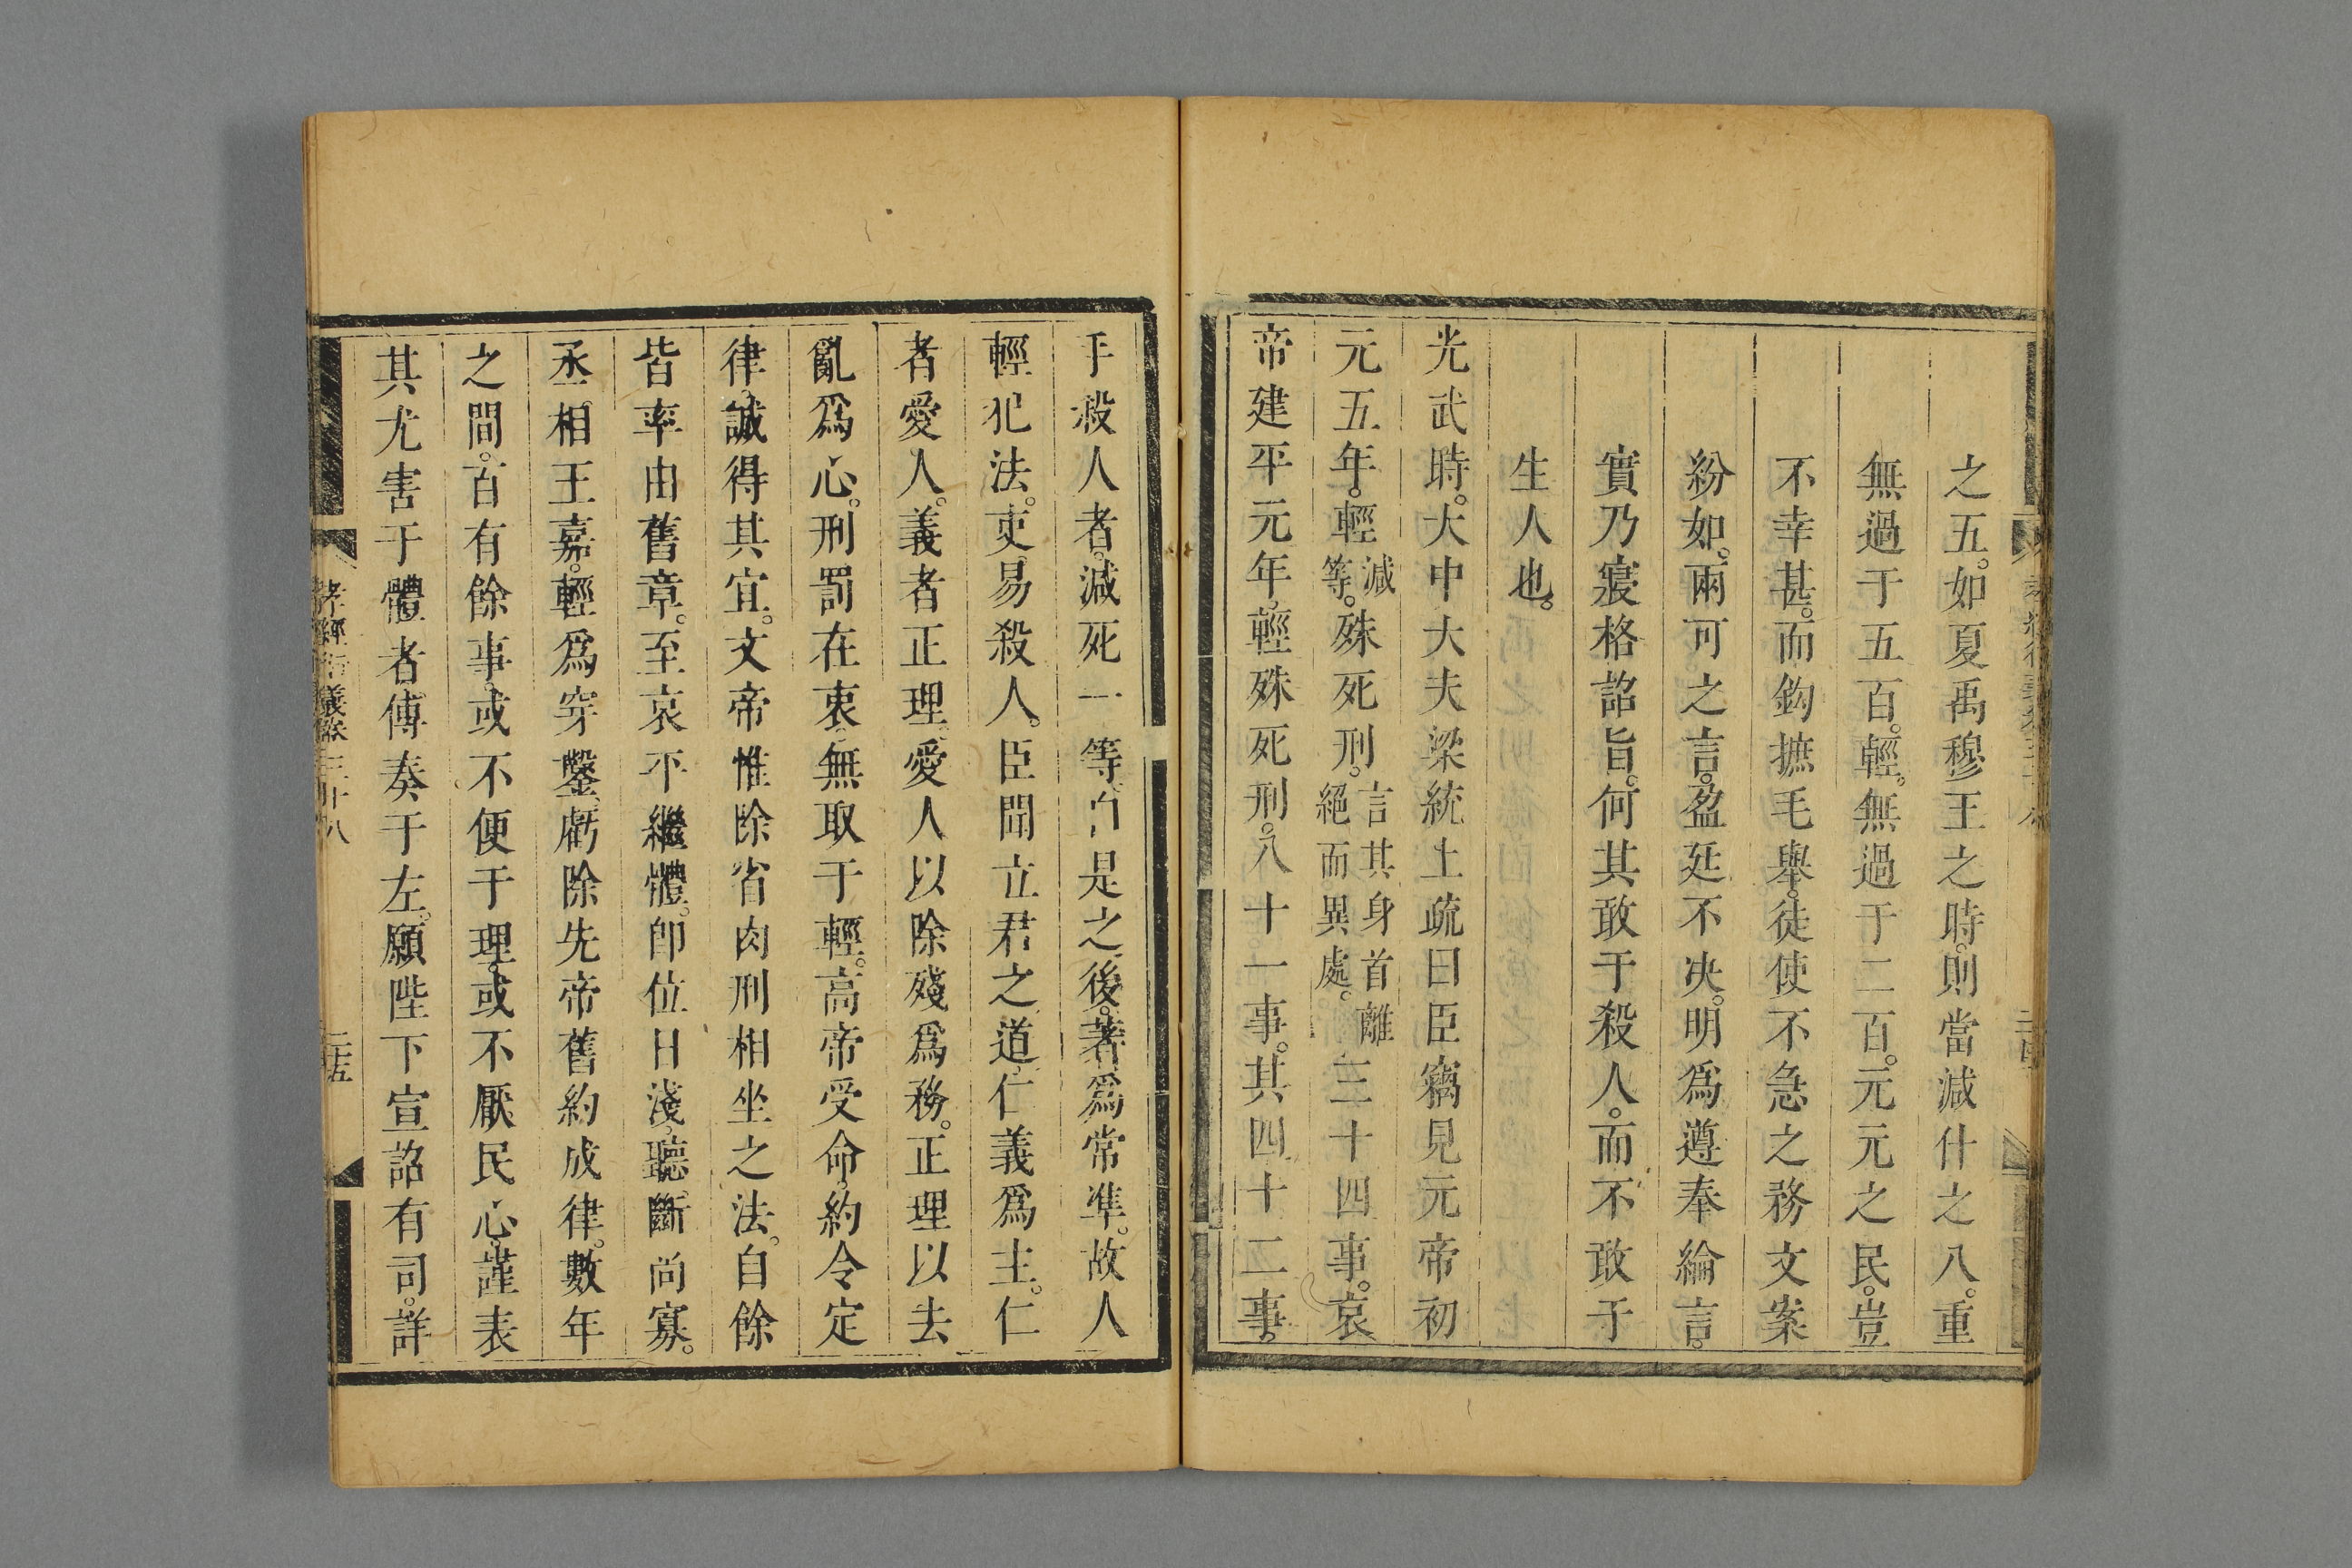 之五。如夏禹穆王之時。則當減什之八。重
無過于五百。輕。無過于二百。元元之民。豈
不幸甚。而鈎摭毛舉。徒使不急之務文案
紛如。兩可之言。盈廷不决。明爲遵奉綸言。
實乃寢格詔旨。何其敢于殺人。而不敢于
生人也。
光武時。大中大夫梁統上疏曰臣竊見元帝初
元五年。輕減等。殊死刑。言其身首離絕而異處。三十四事。哀
帝建平元年。輕殊死刑。八十一事。其四十二事。
手殺人者。減死一等。自是之後。著爲常準。故人
輕犯法。吏易殺人。臣聞立君之道。仁義爲主。仁
者愛人。義者正理。愛人以除殘爲務。正理以去
亂爲心。刑罰在衷。無取于輕。高帝受命。約令定
律。誠得其宜。文帝惟除省肉刑相坐之法。自餘
皆率由舊章。至哀平繼體。卽位日淺。聽斷尚寡。
丞相王嘉。輕爲穿鑿。虧除先帝舊約成律。數年
之間。百有餘事。或不便于理。或不厭民心。謹表
其尤害于體者。傅奏于左。願陛下宣詔有司。詳
孝經衍義卷三十八
二十五